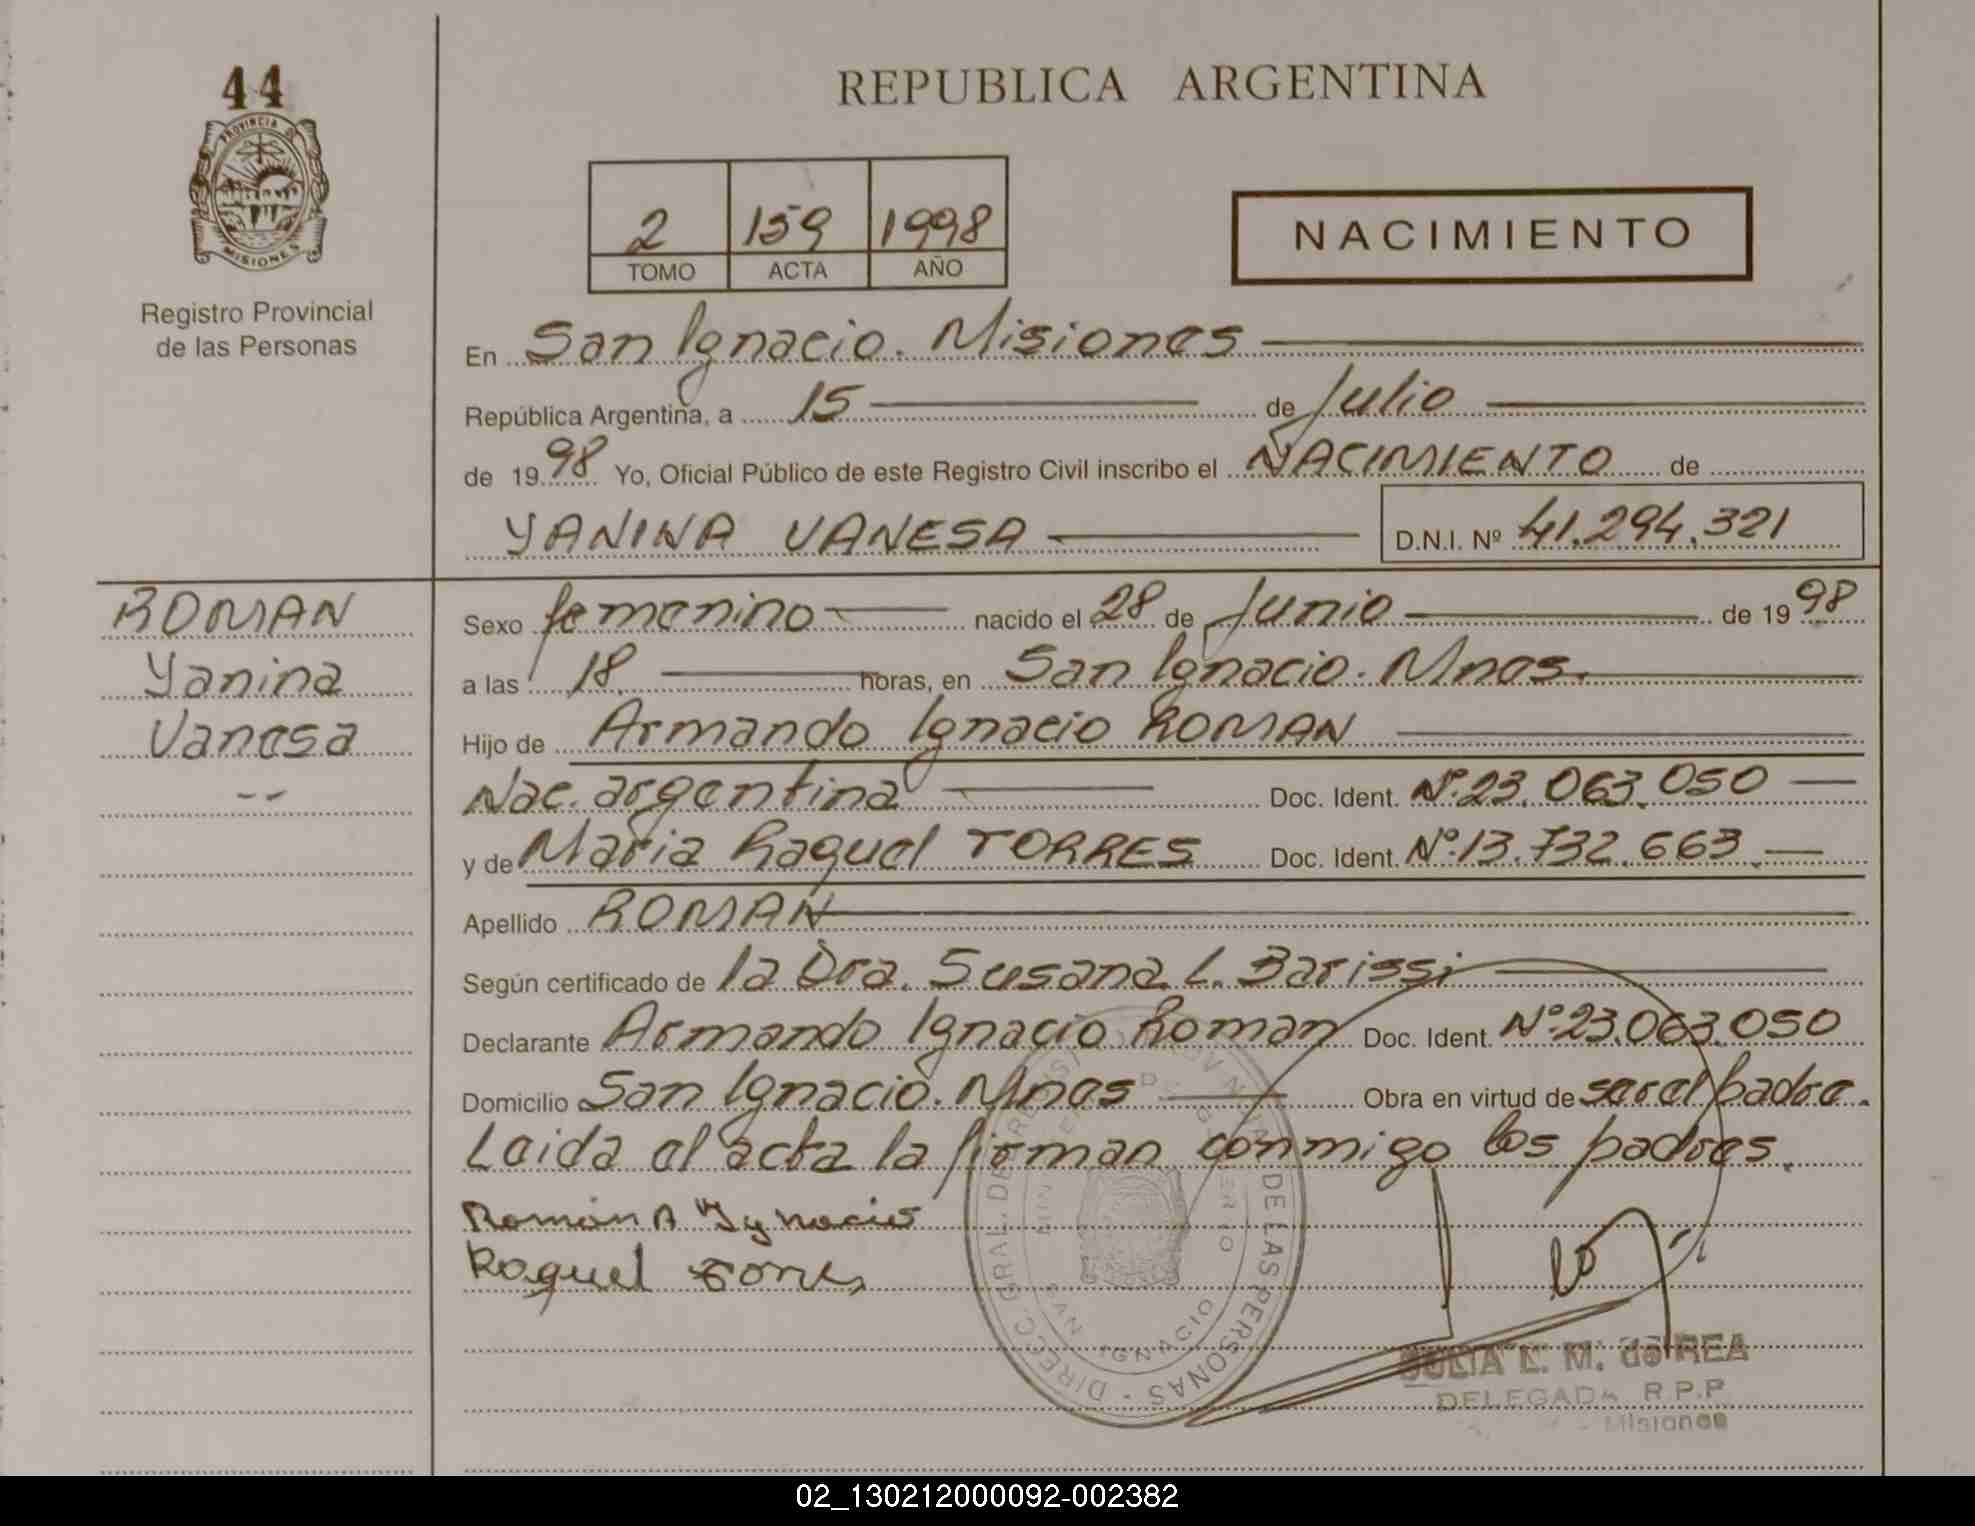 44
PROVINCIA DE
MISIONES
Registro Provincial
de las Personas
REPUBLICA ARGENTINA
2 159 1998
TOMO ACTA AÑO
NACIMIENTO
En San Ignacio. Misiones
República Argentina, a 15 de Julio
de 1998 Yo, Oficial Público de este Registro Civil inscribo el NACIMIENTO de
YANINA VANESA D.N.I. Nº 41.294.321
ROMAN
Yanina
Vanesa
Sexo femenino nacido el 28 de Junio de 1998
a las 18 horas, en San Ignacio. Mnes.
Hijo de Armando Ignacio ROMAN
Nac. argentina Doc. Ident. Nº 23.063.050
y de Maria Raquel TORRES Doc. Ident. Nº 13.732.663
Apellido ROMAN
Según certificado de la Dra. Susana L. Barissi
Declarante Armando Ignacio Roman Doc. Ident. Nº 23.063.050
Domicilio San Ignacio. Mnes Obra en virtud de ser el padre.
Leida el acta la firman conmigo los padres.
Román A Ygnacio
Raquel Torres
DIRECC. GRAL. DE DE LAS PERSONAS
SAN IGNACIO
JULIA L. M. de REA
DELEGADA R.P.P
Misiones
02_130212000092-002382